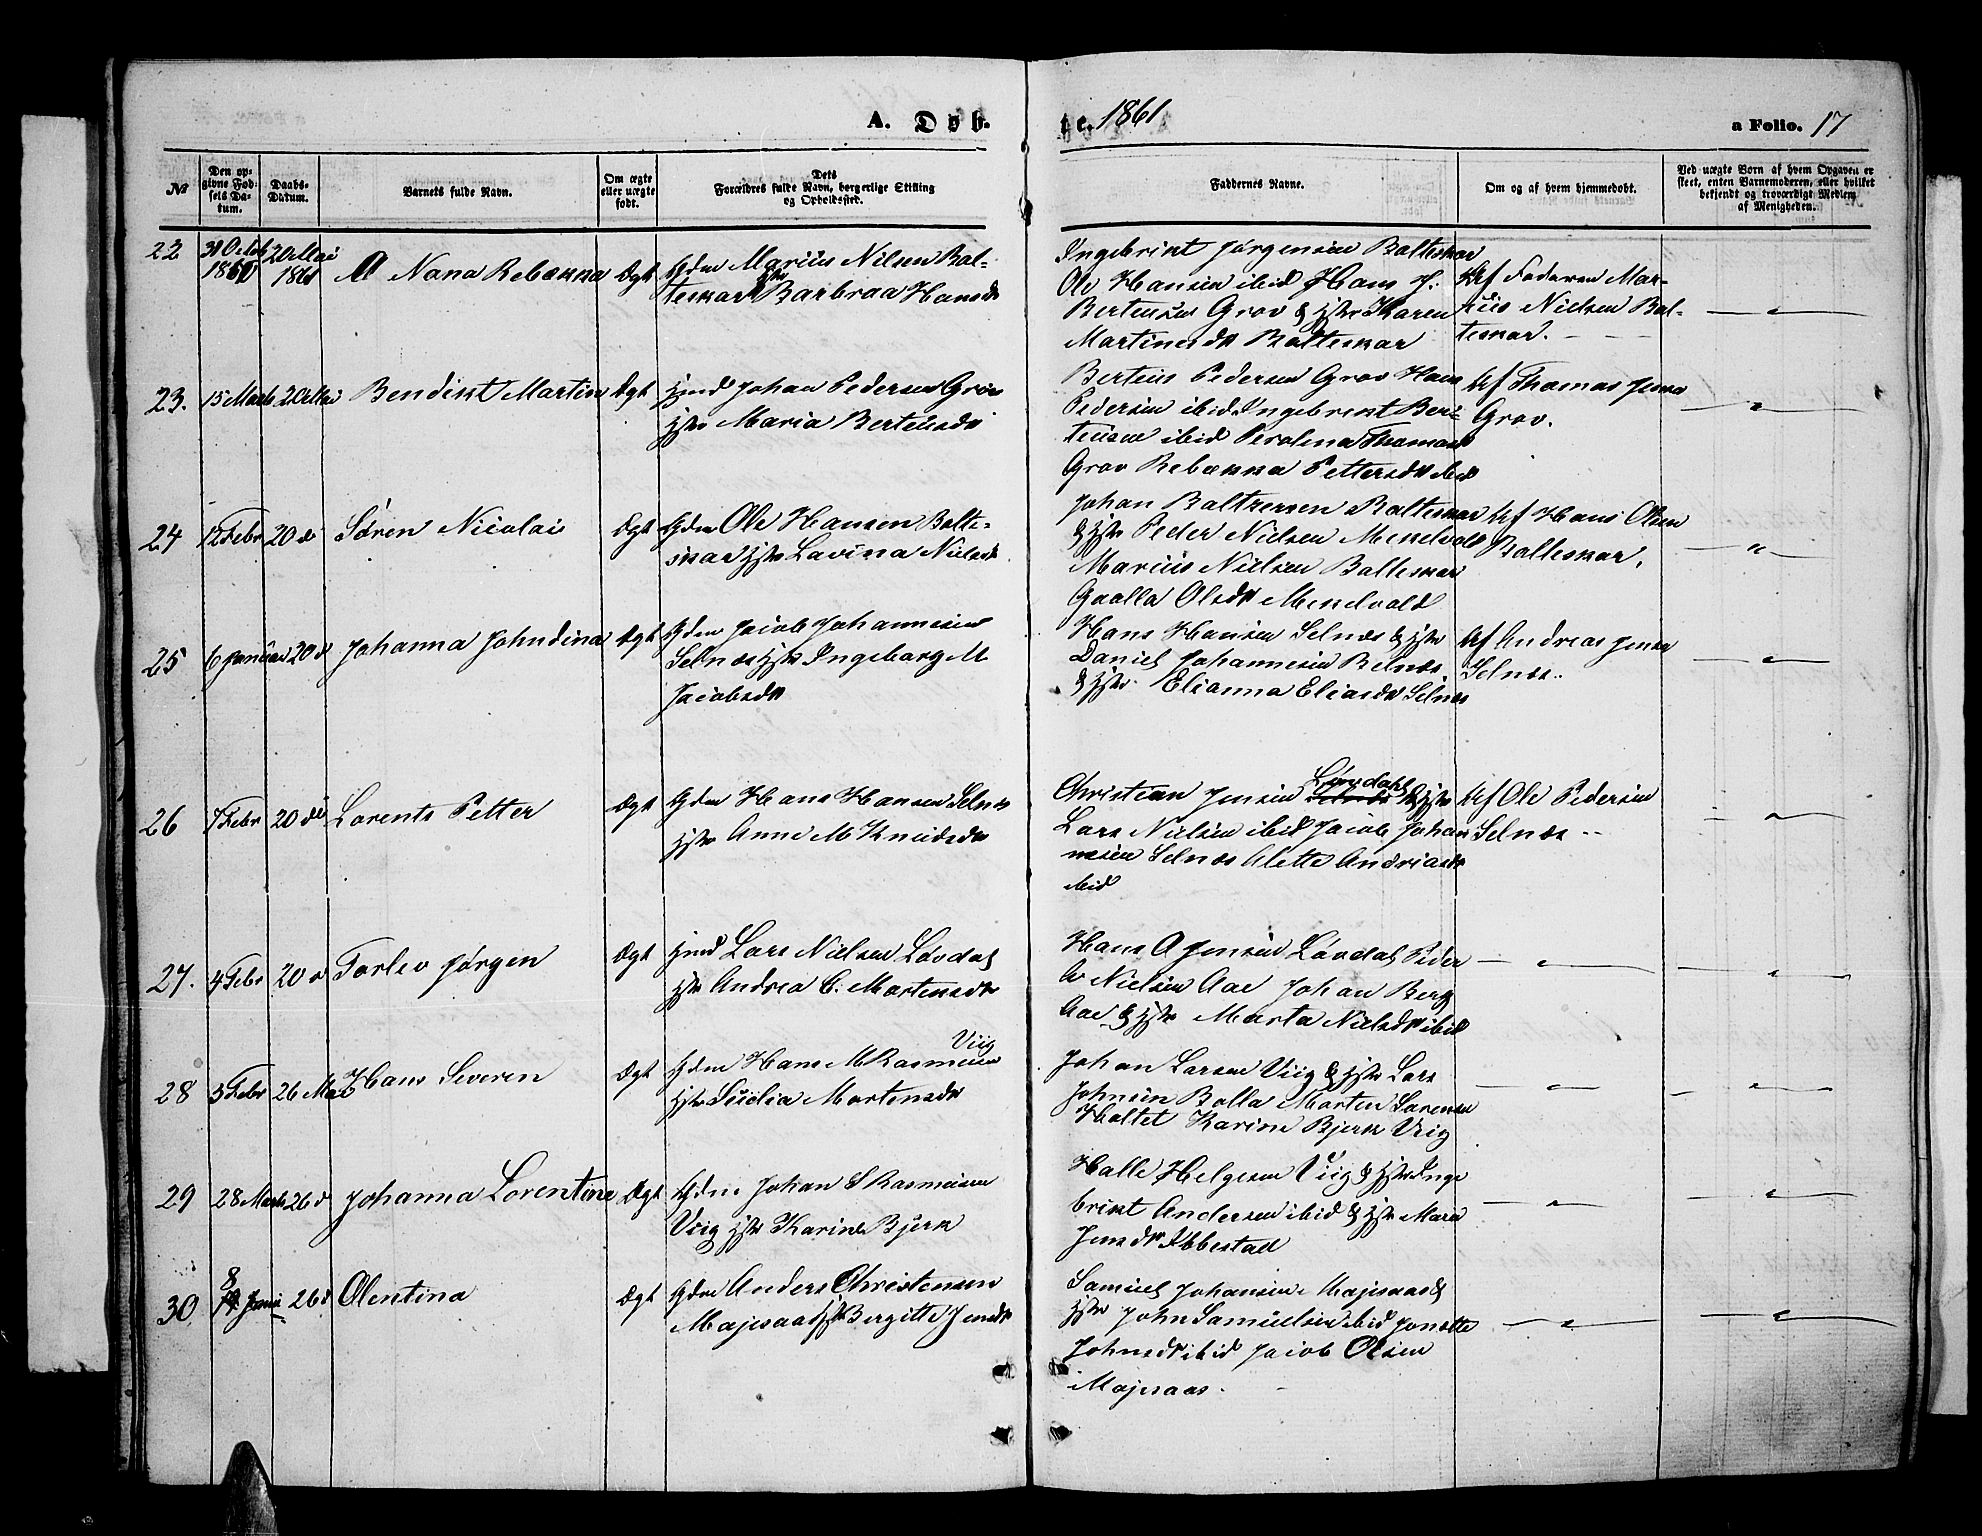 A. Døb-
te. 1861
a Folio. 17
No
Den op-
givne Fød-
sels Da-
tum.
Daabs-
Datum.
Barnets fulde Navn.
Om ægte
eller uægte
født.
Dets
Forældres fulde Navn, borgerlige Stilling
og Opholdssted.
Faddernes Navne.
Om og af hvem hjemmedøbt.
Ved uægte Børn af hvem Opgaven er
skeet, enten Barnemoderen, eller hvilket
bekjendt og troværdigt Medlem
af Menigheden.
22
31 Octob
1860
20 Mai
1861
Nana Rebækka
Ægt
Gdm Marius Nilsen Bal-
teskar Barbraa Hansdr
Ingebrikt Jørgensen Balteskar
Ole Hansen ibid Hans J.
Bertensen Grov & hstr Karen
Martinesdr Balteskar
Af Faderen Mar-
kus Nielsen Bal-
teskar.
23.
15 Marts
20 Mai
Bendikt Martin
Ægt
Hmd Johan Pedersen Grov
hstr Maria Berteusdr
Berteus Pedersen Grov Hans
Pedersen ibid Ingebrikt Ber-
teusen ibid Perolina Thomasdr
Grov Rebækka Pettersdr ibid
Af Thomas Jensen
Grov.
24
12 Febr
20 d
Søren Nicolai
Ægt
Gdm Ole Hansen Balte-
skar hstr Lavina Nielsdr
Johan Baltzersen Balteskar
& hstr Peder Nielsen Meselvold
Marius Nielsen Balteskar
Gaalla Olsdr Meselvold
Af Hans Olsen
Balteskar.
25
6 Januar
20 d
Johanna Johndina
Ægt
Gdm Jacob Johannesen
Selnæs hstr Ingeborg M
Jacobsdr
Hans Hansen Selnæs & hstr
Daniel Johannesen Selnæs
& hstr Elianna Eliasdr Selnæs
Af Andreas Jensen
Selnæs.
26
7 Febr
20 de
Lorents Petter
Ægt
Gdm Hans Hansen Selnæs
hstr Anne M Knudsdr
Løvdahl
Christian Jensen Selnæs & hstr
Lars Nielsen ibid Jacob Johan
nesen Selnæs Alette Andreasdr
ibid
Af Ole Pedersen
Selnæs
27.
4 Febr
20 d
Torlev Jørgen
Ægt
Hmd Lars Nielsen Løvdal
hstr Andrea C. Martensdr
Hans A Jensen Løvdal Peder
A Nielsen Aae Johan Berg
Aae & hstr Marta Nielsdr ibid
28
5 Febr
26 Mai
Hans Severen
Ægt
Viig
Gdm Hans M Rasmusen
hstr Martensdr
Johan Larsen Viig & hstr Lars
Johnsen Bolla Morten Sørensen
Holtet Karine Bjerk Viig
29
28 Marts
26 d
Johanna Lorentine
Ægt
Gdm Johan S Rasmusen
Viig hstr Karine Bjerk
Halle Helgesen Viig & hstr Inge
brikt Andersen ibid & hstr Maren
Jensdr Ibbestad
30
8
Juni
26 d
Olentina
Ægt
Gdm Anders Christensen
Majesaas hstr Bergitte Jensdr
Samuel Johansen Majesaas &
hstr John Samuelsen ibid Jonette
Johnsdr ibid Jacob Olsen
Majesaas.